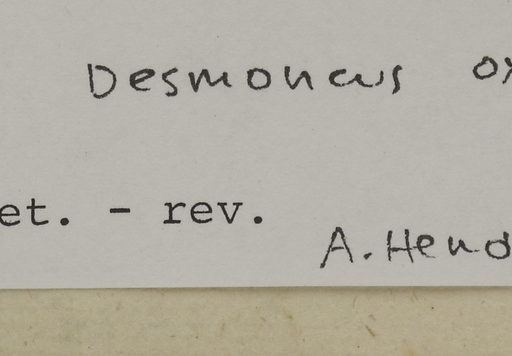 Desmoncus ox
et. - rev.
A. Hend